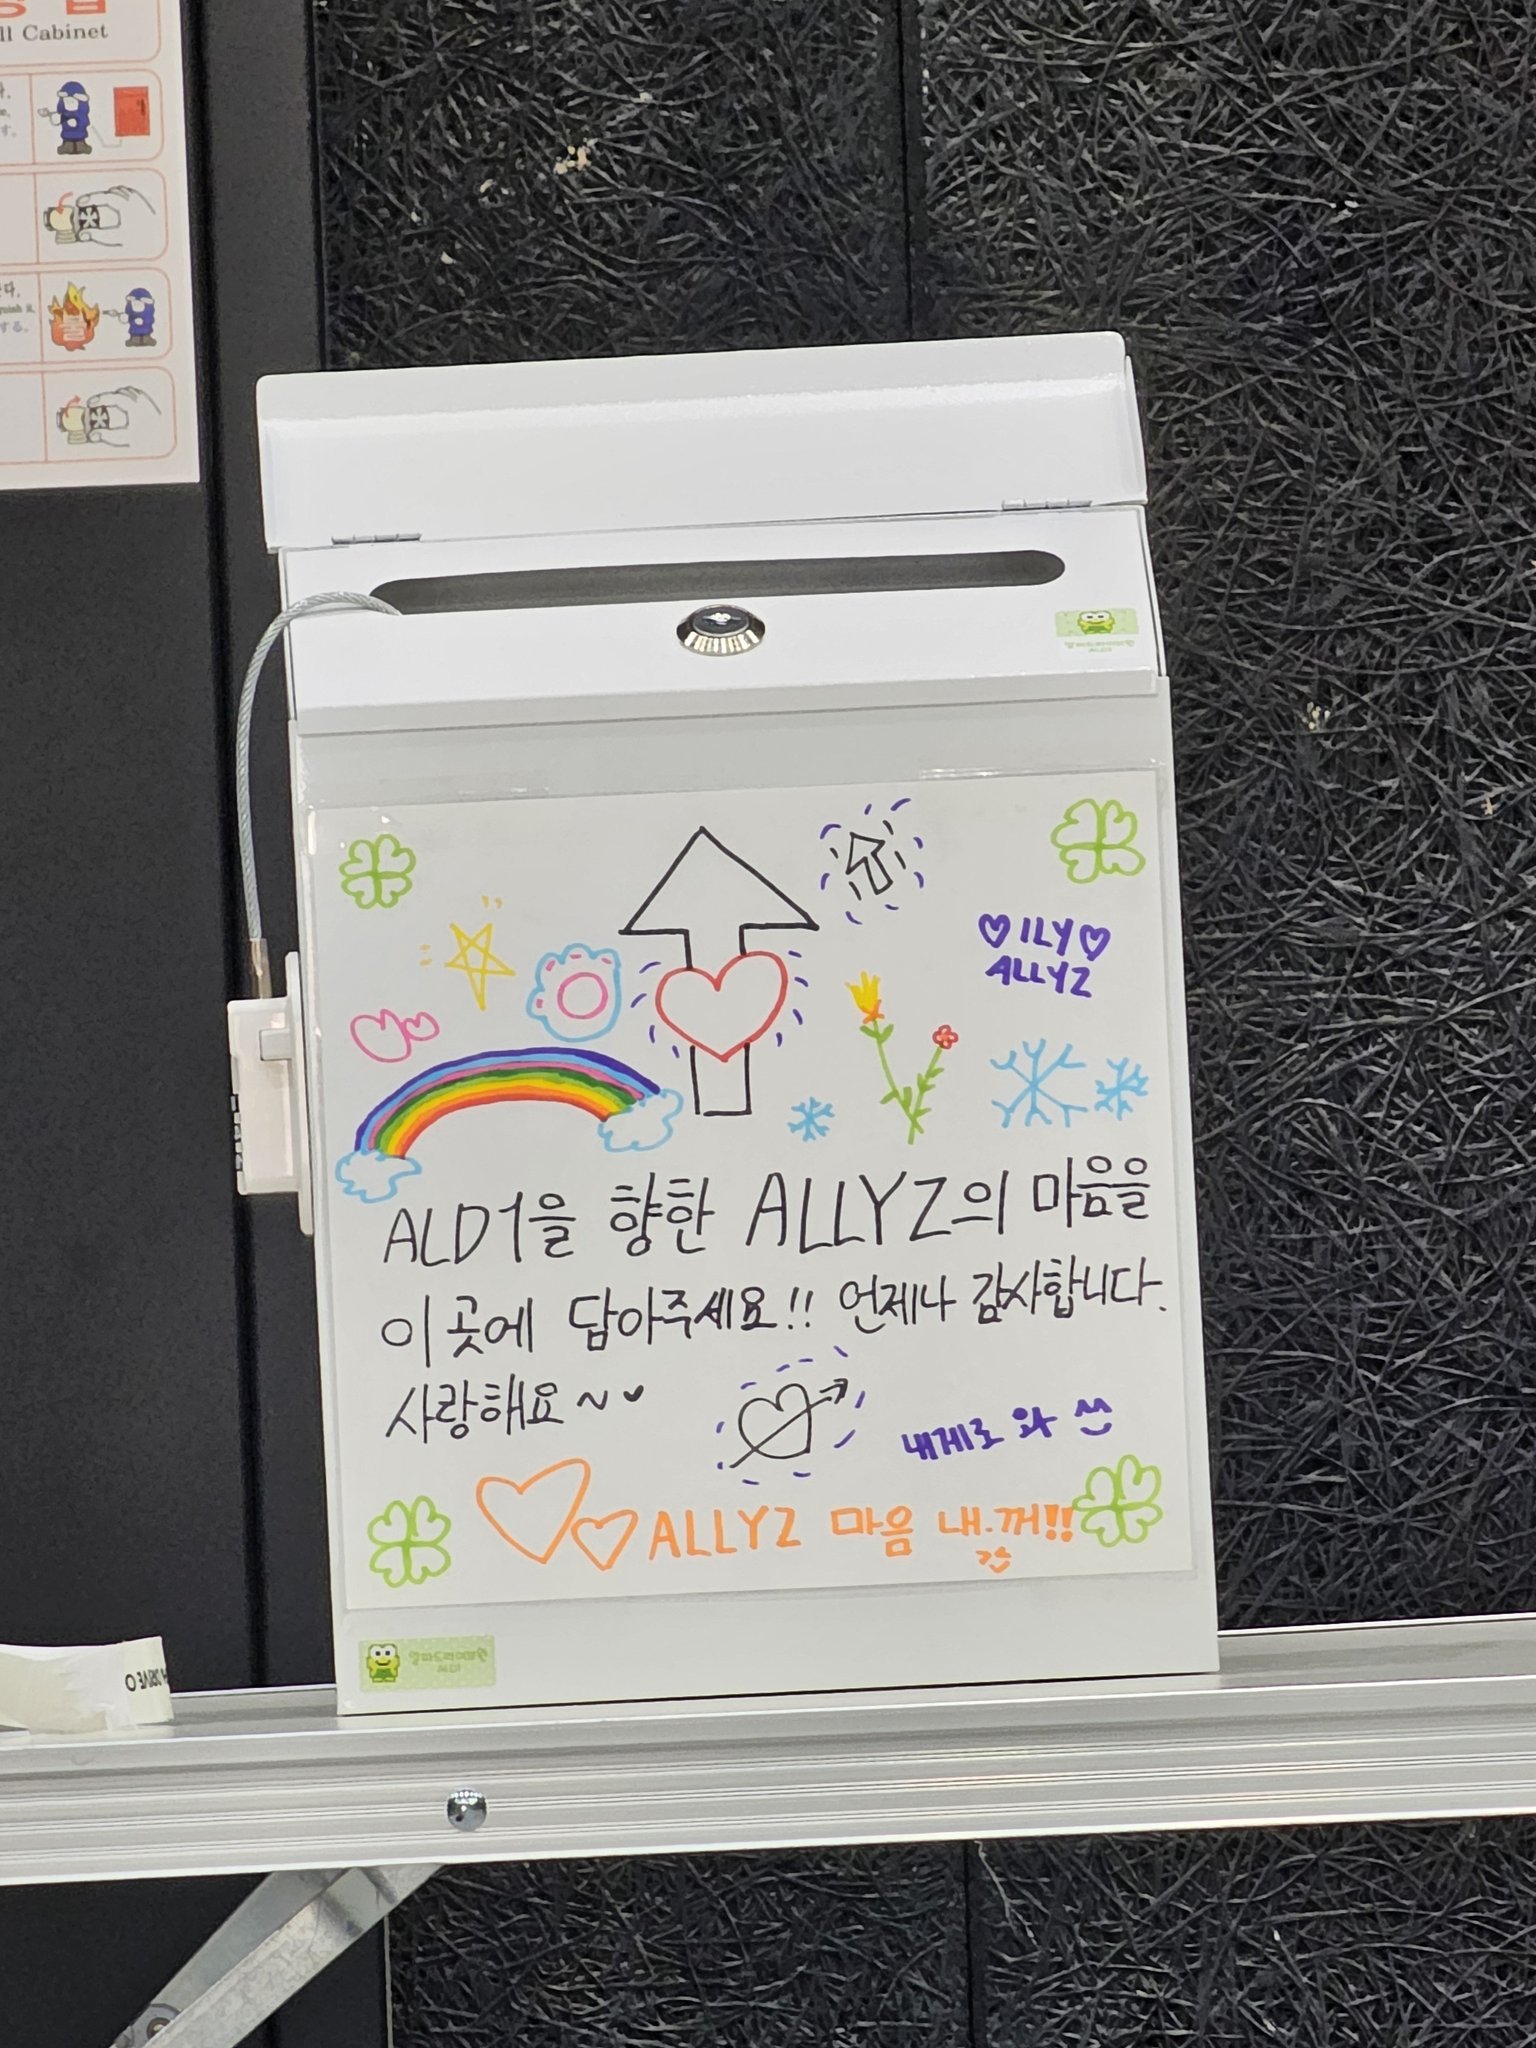 ll Cabinet
ILY
ALLYZ
ALD1을 향한 ALLYZ의 마음을
이 곳에 담아주세요!! 언제나 감사합니다.
사랑해요~
내게로 와 ^^
ALLYZ 마음 내.꺼!!